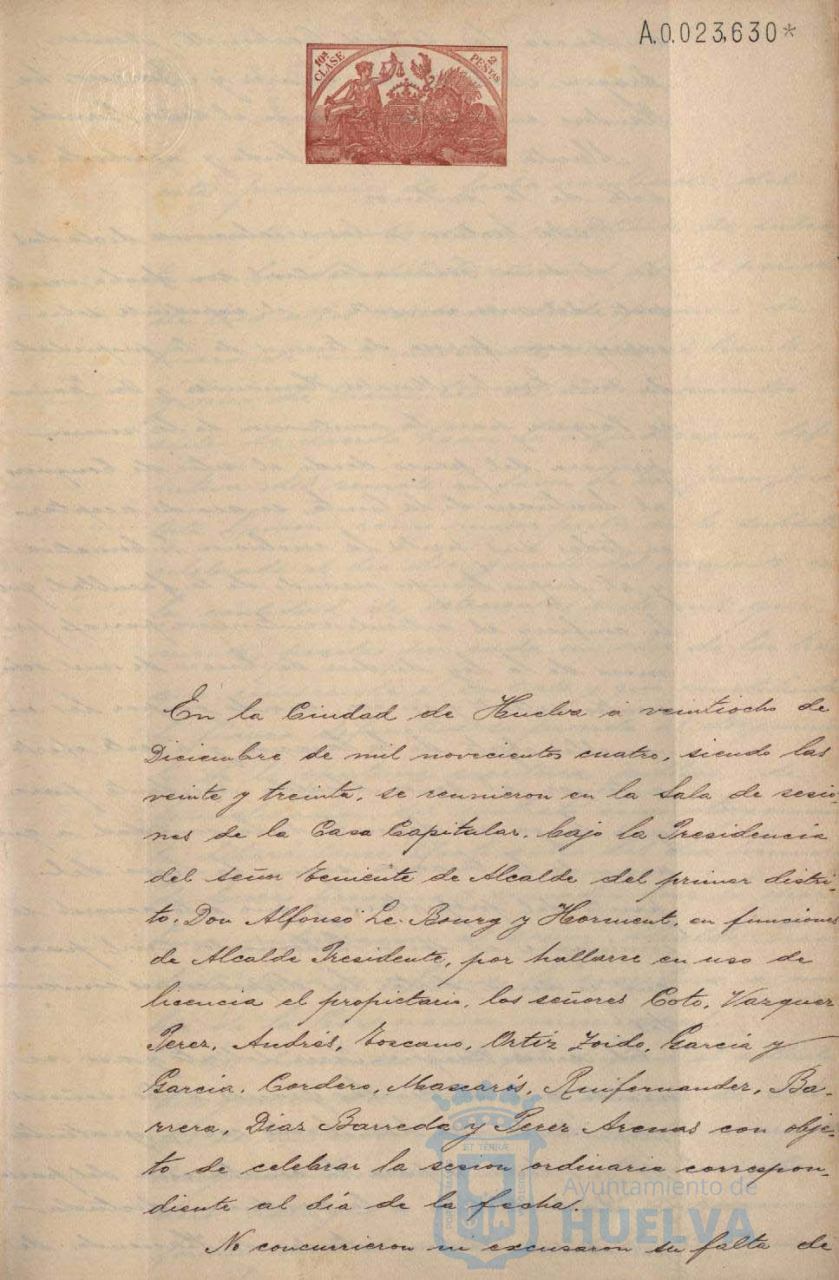 A.0.023,630*
10ª CLASE
2 PESETAS
En la Ciudad de Huelva a veintiocho de
Diciembre de mil novecientos cuatro, siendo las
veinte y treinta, se reunieron en la Sala de sesio-
nes de la Casa Capitular, bajo la Presidencia
del señor Teniente de Alcalde del primer distri-
to, Don Alfonso Le-Bourg y Horment, en funciones
de Alcalde Presidente, por hallarse en uso de
licencia el propietario, los señores Coto, Vazquez
Perez, Andrés, Toscano, Ortiz Zoido, Garcia y
Garcia, Cordero, Mascarós, Ruifernandez, Ba-
rrera, Diaz Barreda y Perez Arenas con obje-
to de celebrar la sesion ordinaria correspon-
diente al día de la fecha.
No concurrieron ni excusaron su falta de
Ayuntamiento de
HUELVA